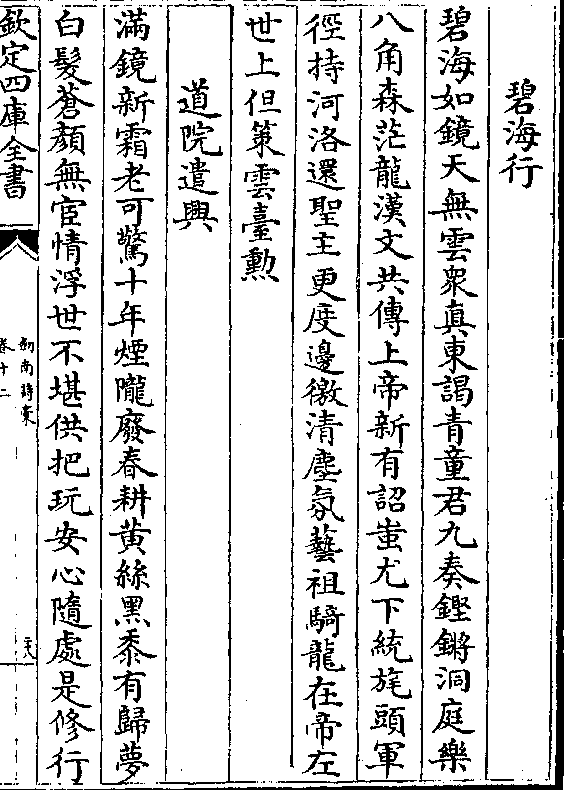 碧海行
碧海如鏡天無雲衆真東謁青童君九奏鏗鏘洞庭樂
八角森茫龍漢文共傳上帝新有詔蚩尤下統旄頭軍
徑持河洛還聖主更度邊徼清塵氛藝祖騎龍在帝左
世上但策雲臺勲
道院遣興
滿鏡新霜老可驚十年煙隴廢春耕黄絲黑黍有歸夢
白髮蒼顏無宦情浮世不堪供把玩安心隨處是修行
欽定四庫全書
劍南詩藁
卷十二